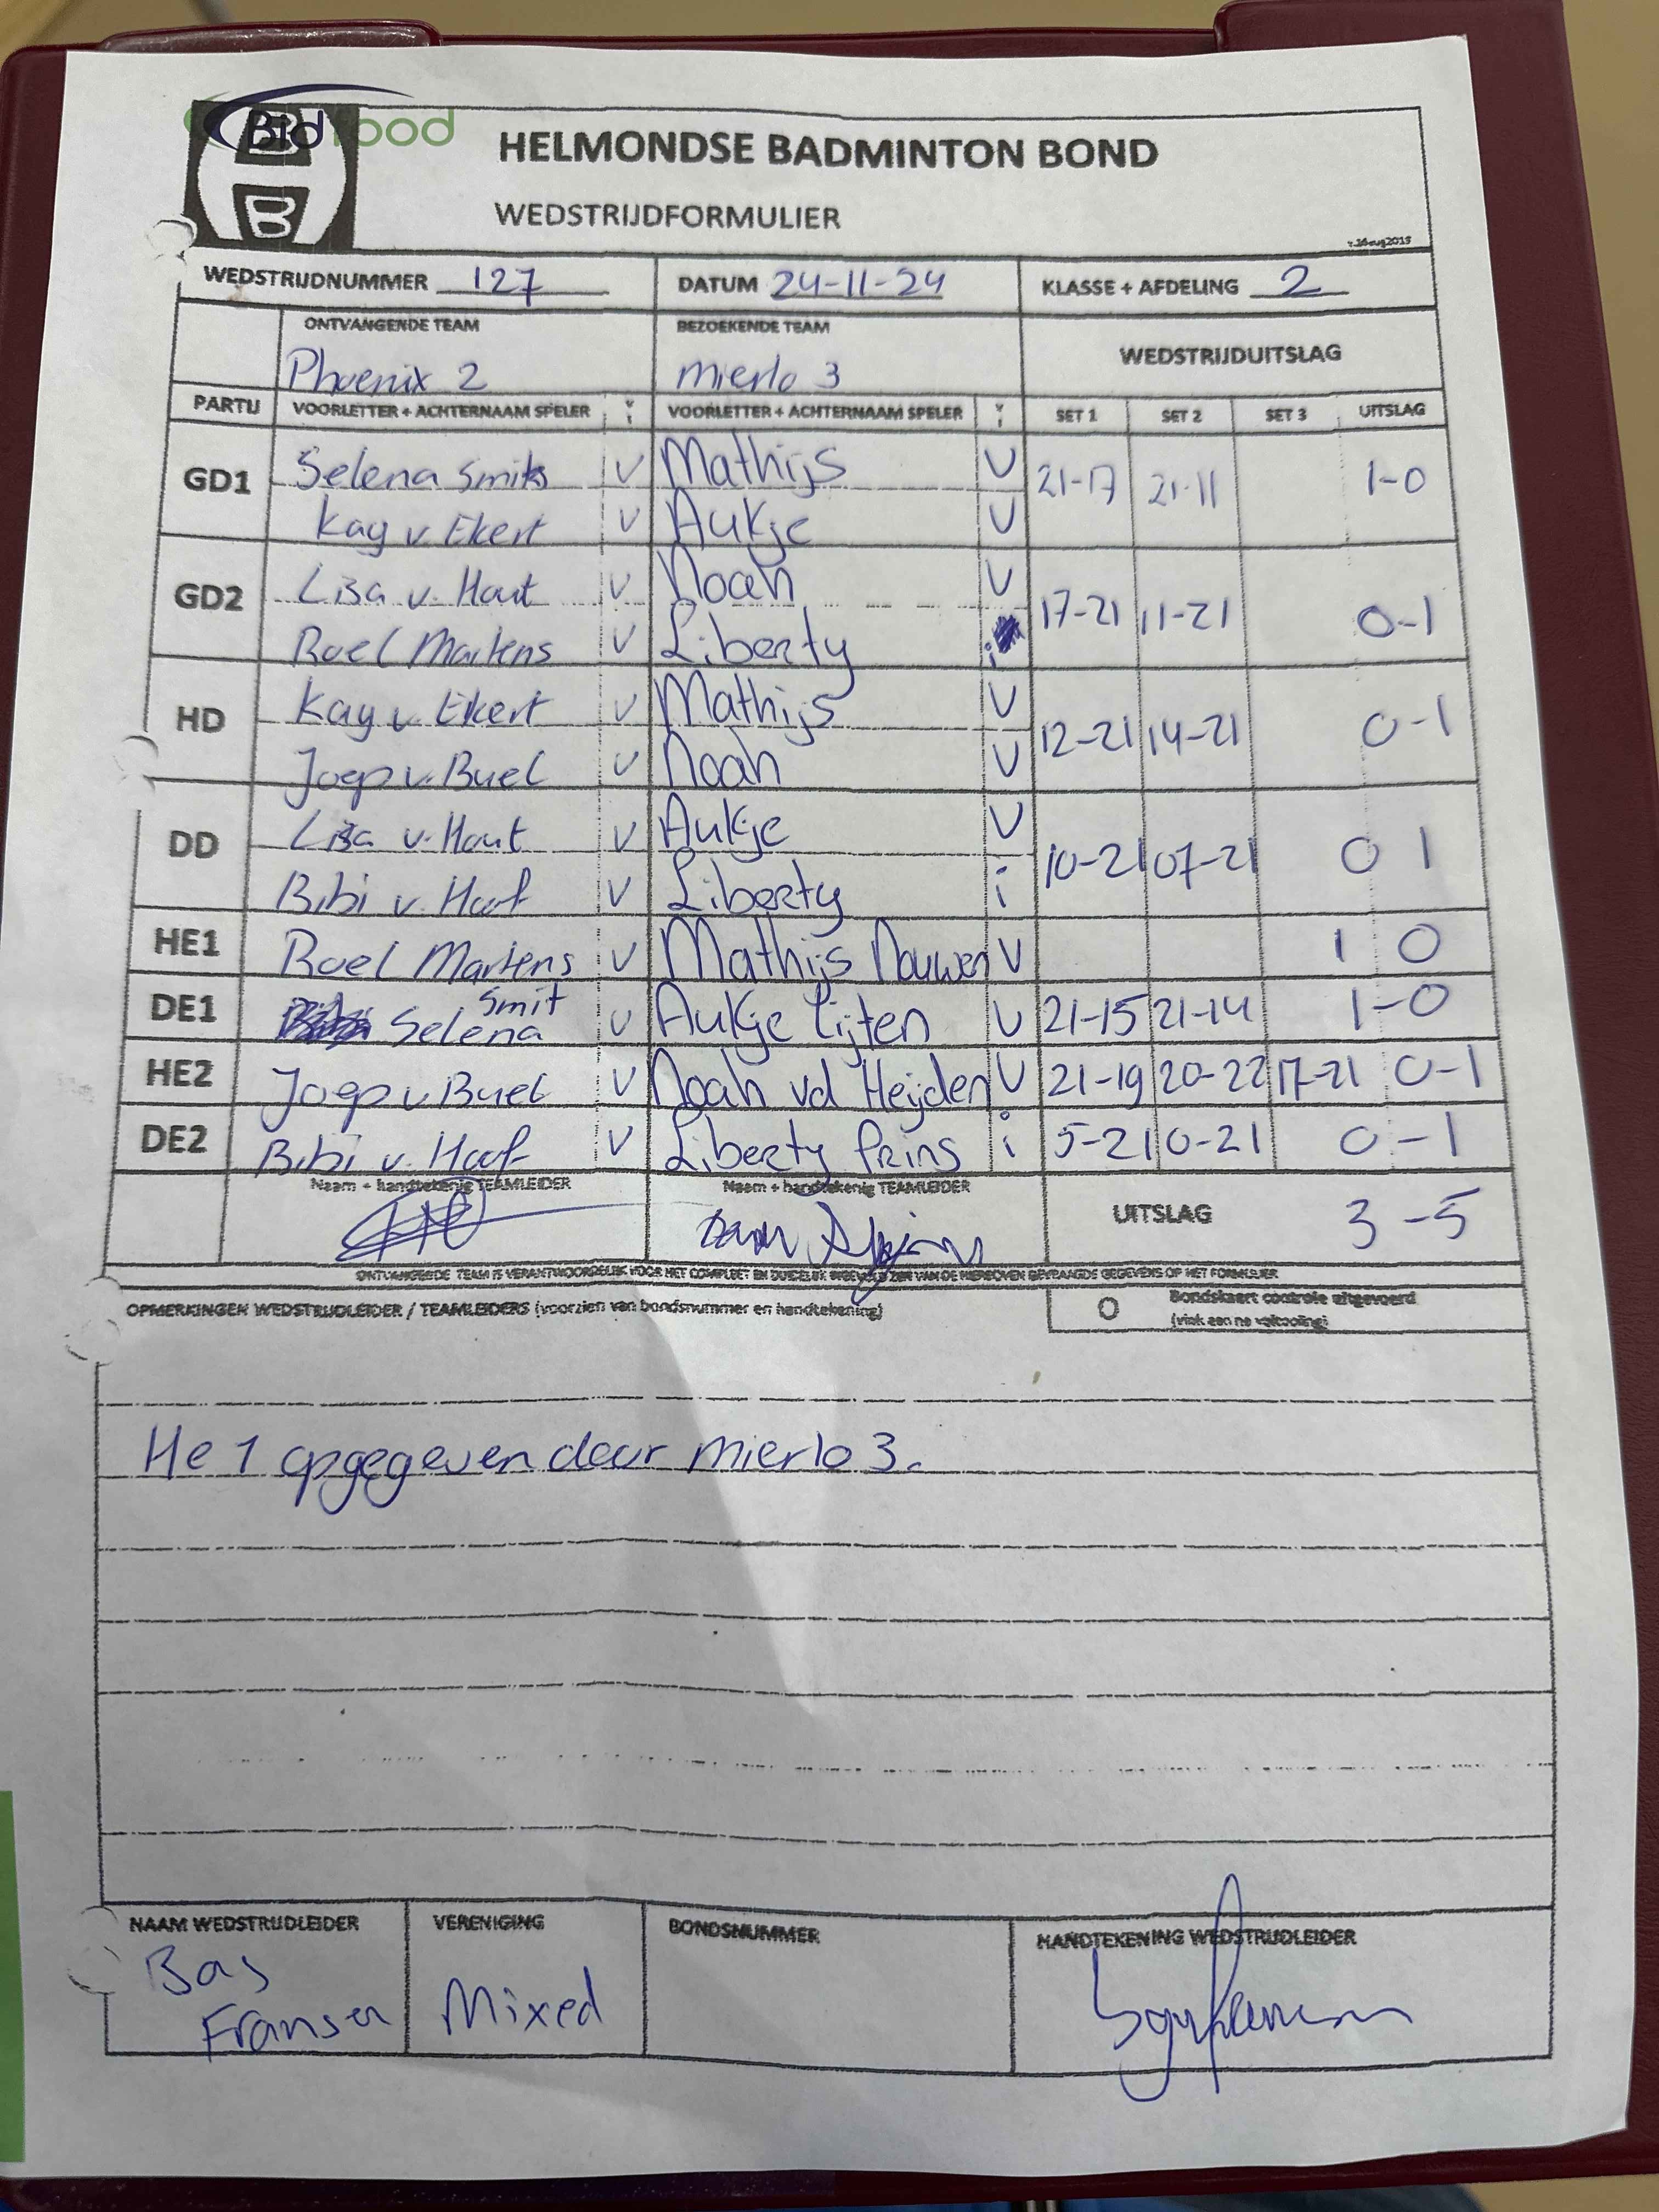 Bidfood
HELMONDSE BADMINTON BOND
WEDSTRIJDFORMULIER
v.16aug2015
WEDSTRIJDNUMMER 127 DATUM 24-11-24 KLASSE + AFDELING 2
ONTVANGENDE TEAM BEZOEKENDE TEAM WEDSTRIJDUITSLAG
Phoenix 2 Mierlo 3
PARTIJ VOORLETTER + ACHTERNAAM SPELER V I VOORLETTER + ACHTERNAAM SPELER V I SET 1 SET 2 SET 3 UITSLAG
GD1 Selena Smits V Mathijs V 21-17 21-11 1-0
Kay v. Ekert V Aukje V
GD2 Lisa v. Hout V Noah V 17-21 11-21 0-1
Roel Martens V Liberty i
HD Kay v. Ekert V Mathijs V 12-21 14-21 0-1
Joep v. Buel V Noah V
DD Lisa v. Hout V Aukje V 10-21 07-21 0 1
Bibi v. Hoof V Liberty i
HE1 Roel Martens V Mathijs Nouwen V 1 0
DE1 Selena Smit V Aukje Lijten V 21-15 21-14 1-0
HE2 Joep v Buel V Noah vd Heijden V 21-19 20-22 17-21 0-1
DE2 Bibi v. Hoof V Liberty Prins i 5-21 0-21 0-1
Naam + handtekenig TEAMLEIDER Naam + handtekenig TEAMLEIDER
UITSLAG 3-5
ONTVANGENDE TEAM IS VERANTWOORDELIJK VOOR HET COMPLEET EN DUIDELIJK INGEVULD ZIJN VAN DE HIERBOVEN GEVRAAGDE GEGEVENS OP HET FORMULIER
OPMERKINGEN WEDSTRIJDLEIDER / TEAMLEIDERS (voorzien van bondsnummer en handtekening)
O Bondskaart controle uitgevoerd
(vink aan na voltooiing)
He 1 opgegeven door mierlo 3.
NAAM WEDSTRIJDLEIDER VERENIGING BONDSNUMMER HANDTEKENING WEDSTRIJDLEIDER
Bas
Fransen Mixed